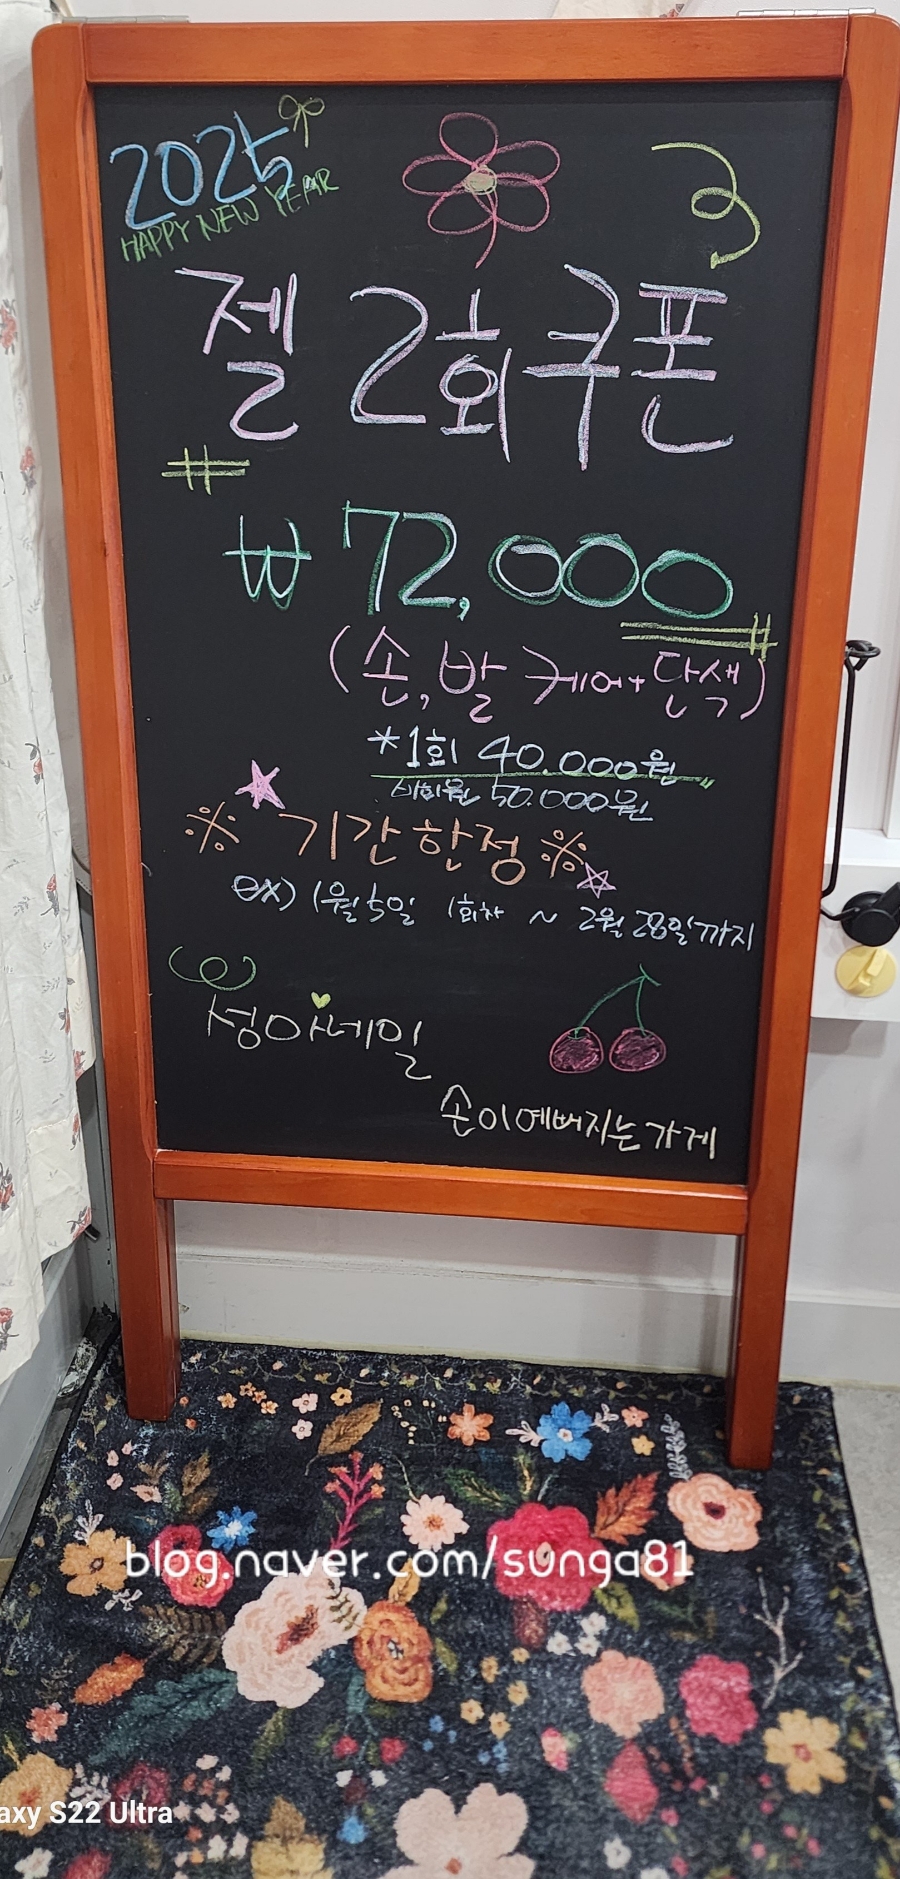 2025
HAPPY NEW YEAR
젤 2회 쿠폰
₩ 72,000
(손,발 케어+단색)
*1회 40.000원
비회원 50.000원
※ 기간한정 ※
ex) 1월5일 1회차 ~ 2월 28일까지
성아네일
손이예뻐지는가게
blog.naver.com/sunga81
axy S22 Ultra